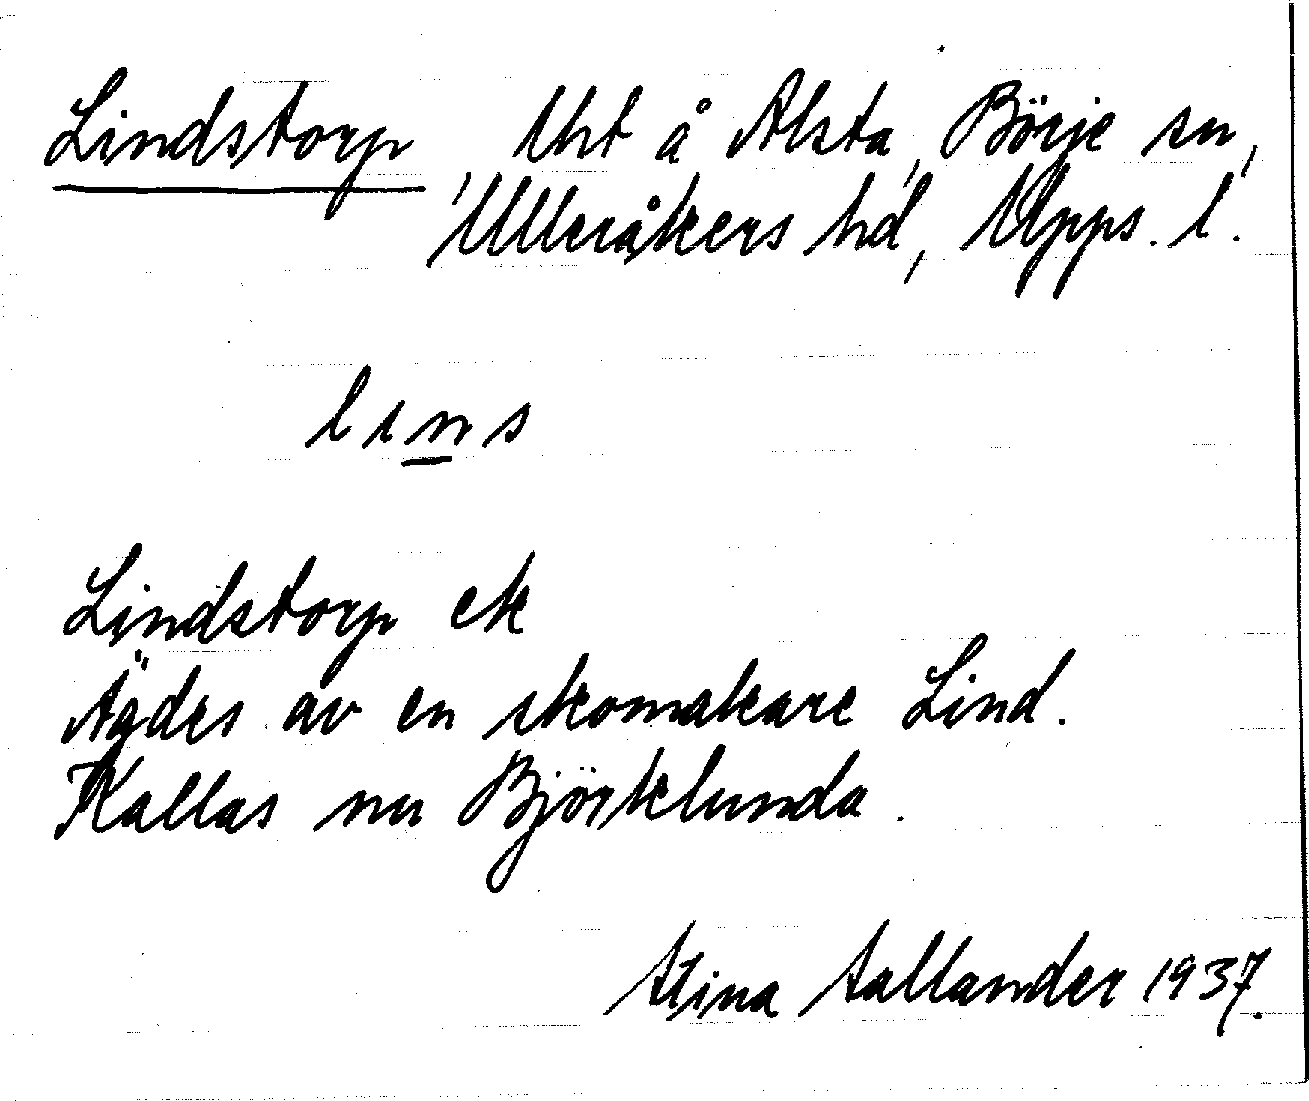 Lindstorp lht å Alsta, Börje sn,
Ulleråkers hd, Upps. l.
lıns
Lindstorp ek
Ägdes av en skomakare Lind.
Kallas nu Björklunda.
Stina Sallander 1937.